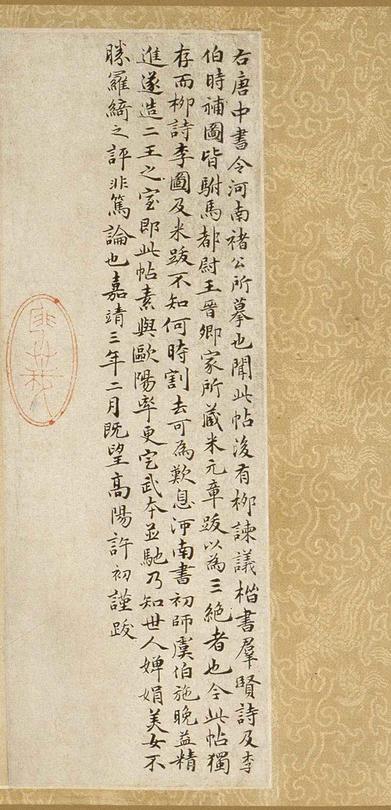 右唐中書令河南褚公所摹也聞此帖後有柳諫議楷書羣賢詩及李
伯時補圖皆駙馬都尉王晉卿家所藏米元章跋以為三絕者也今此帖獨
存而柳詩李圖及米跋不知何時割去可為歎息河南書初師虞伯施晚益精
進遂造二王之室即此帖素與歐陽率更定武本並馳乃知世人嬋娟美女不
勝羅綺之評非篤論也嘉靖三年二月既望高陽許初謹跋